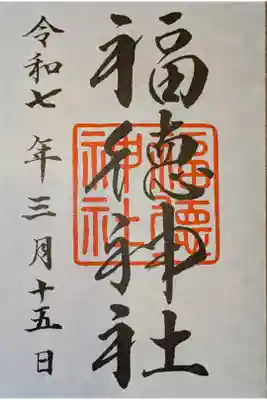 福徳神社
令和七年三月十五日
福徳
神社